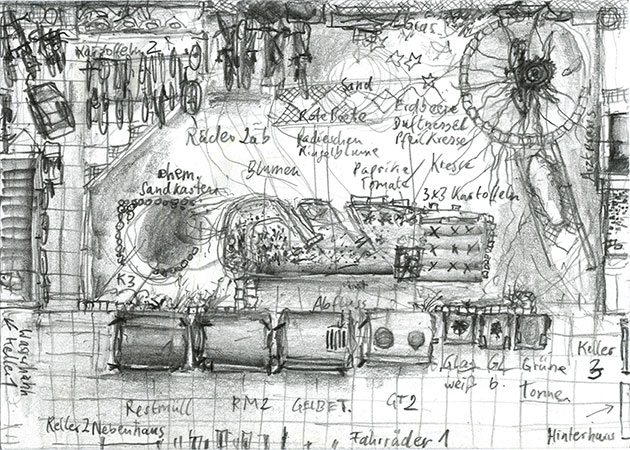 Glas
Kartoffeln 2
Sand
Rote Beete
Erdbeere
Räder 2 ab
Radieschen
Duftnessel
Ringelblume
Pfeilkresse
Kresse
Blumen
Paprika
Tomate
ehem.
Sandkasten
3x3 Kartoffeln
K3
Abfluss
Keller 1
Glas
weiß
Gl.
b.
Grüne
Tonnen
Keller
Restmüll
RM2
GELBE T.
GT2
Keller 2 Nebenhaus
Fahrräder 1
Hinterhaus